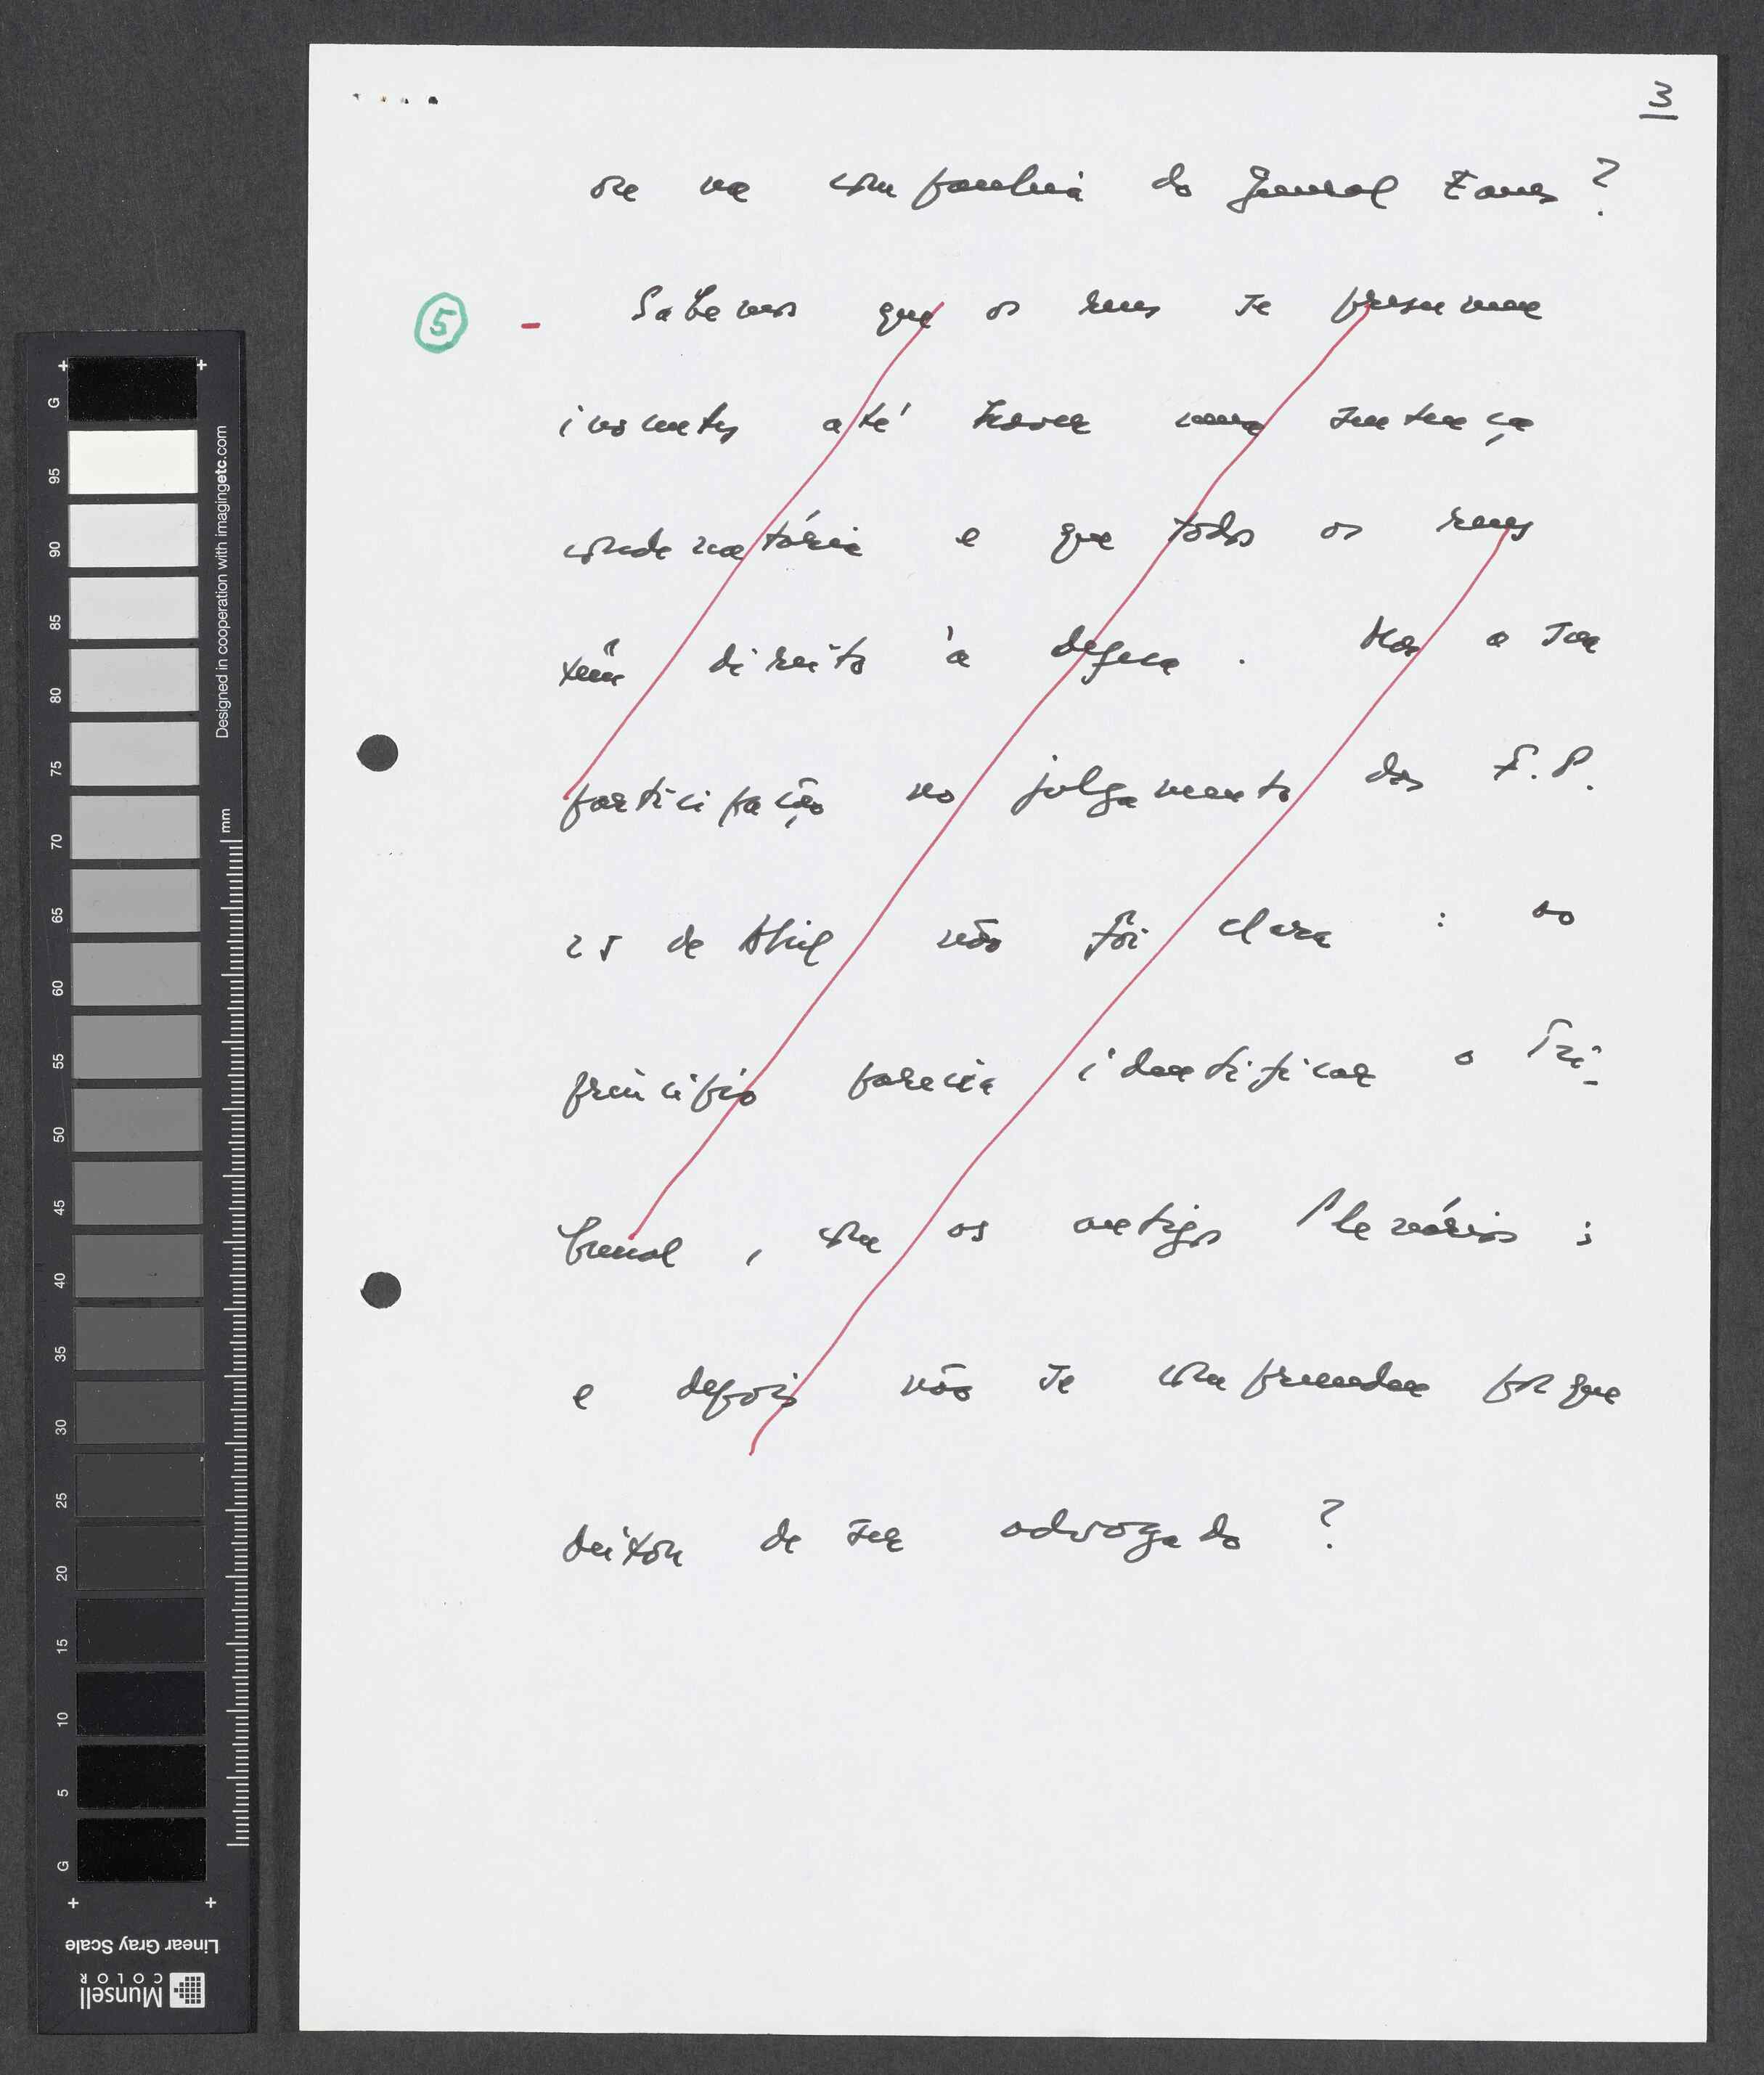 3
ou na companhia do General Eanes ?
5 - Sabemos que os reus se presumem
inocentes até haver uma sentença
condenatória e que todos os reus
têm direito à defesa . Mas a sua
participação no julgamento das F.P.
25 de Abril não foi clara : ao
princípio parecia identificar o Tri-
bunal , com os antigos Plenários ;
e depois não se compreendeu porque
deixou de ser advogado ?
G
95
90
85
80
75
70
65
60
55
50
45
40
35
30
25
20
15
10
5
G
mm
Designed in cooperation with imagingetc.com
Linear Gray Scale
Munsell
COLOR